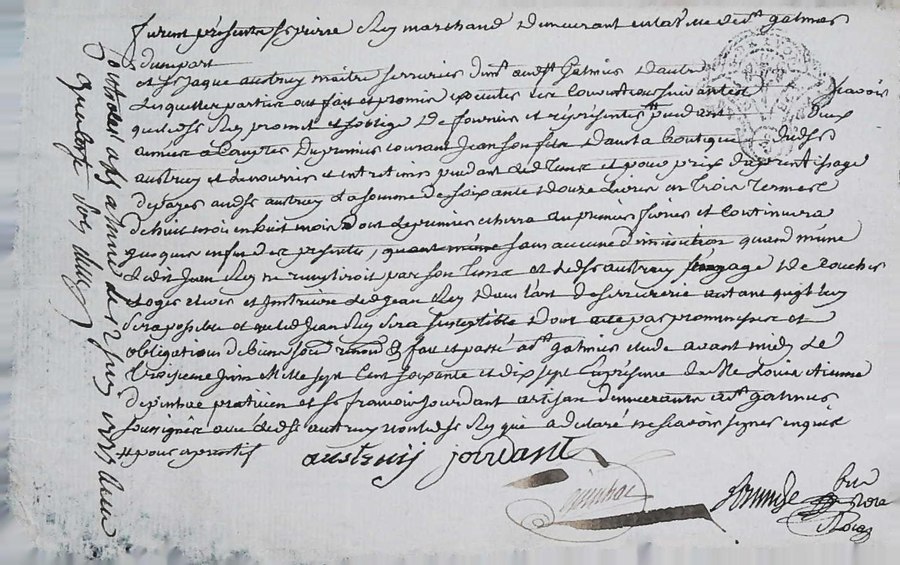 furent présents sr pierre Rey marchand demeurant en la ville de st galmier
d'une part
et sr Jaque austruy maitre serrurier dud st Galmier d'autre
Lesquelles parties ont fait et promis executer les conventions suivantes scavoir
que led sr Rey promet et soblige de fournir et représenter pendant deux
années a Compter du premier courant Jean son fils dans la boutique dud sr
austruy et de nourrir et entretenir pendant led tems et pour prix daprentissage
de payer aud sr austruy la somme de soixante douze livres en trois termes
de huit mois en huit mois dont le premier echerra au premier fevrier et continuera
jusques enfin des presentes, quand même sans aucune diminution quand même
led Jean Rey ne rempliroit pas son tems et led sr austruy sengage de coucher
loger et instruire led Jean Rey dans l'art de serrurerie autant quil luy
sera possible et que led Jean Rey sera susceptible dont acte par promission et
obligations de biens soum renon & fait et passé a st galmier etude avant midy le
troisieme Juin Mille sept Cent soixante et dix sept En présence de Me Louis Etienne
depinhac praticien et sr francois Jourdant artisan demeurants a st galmier
soussignés avec led sr austruy non led sr Rey qui a déclaré ne scavoir signer enquis
austruy jourdant
pinhac
Controlé a st galmier le 12 Juin 1777 Recu
quatorze sols